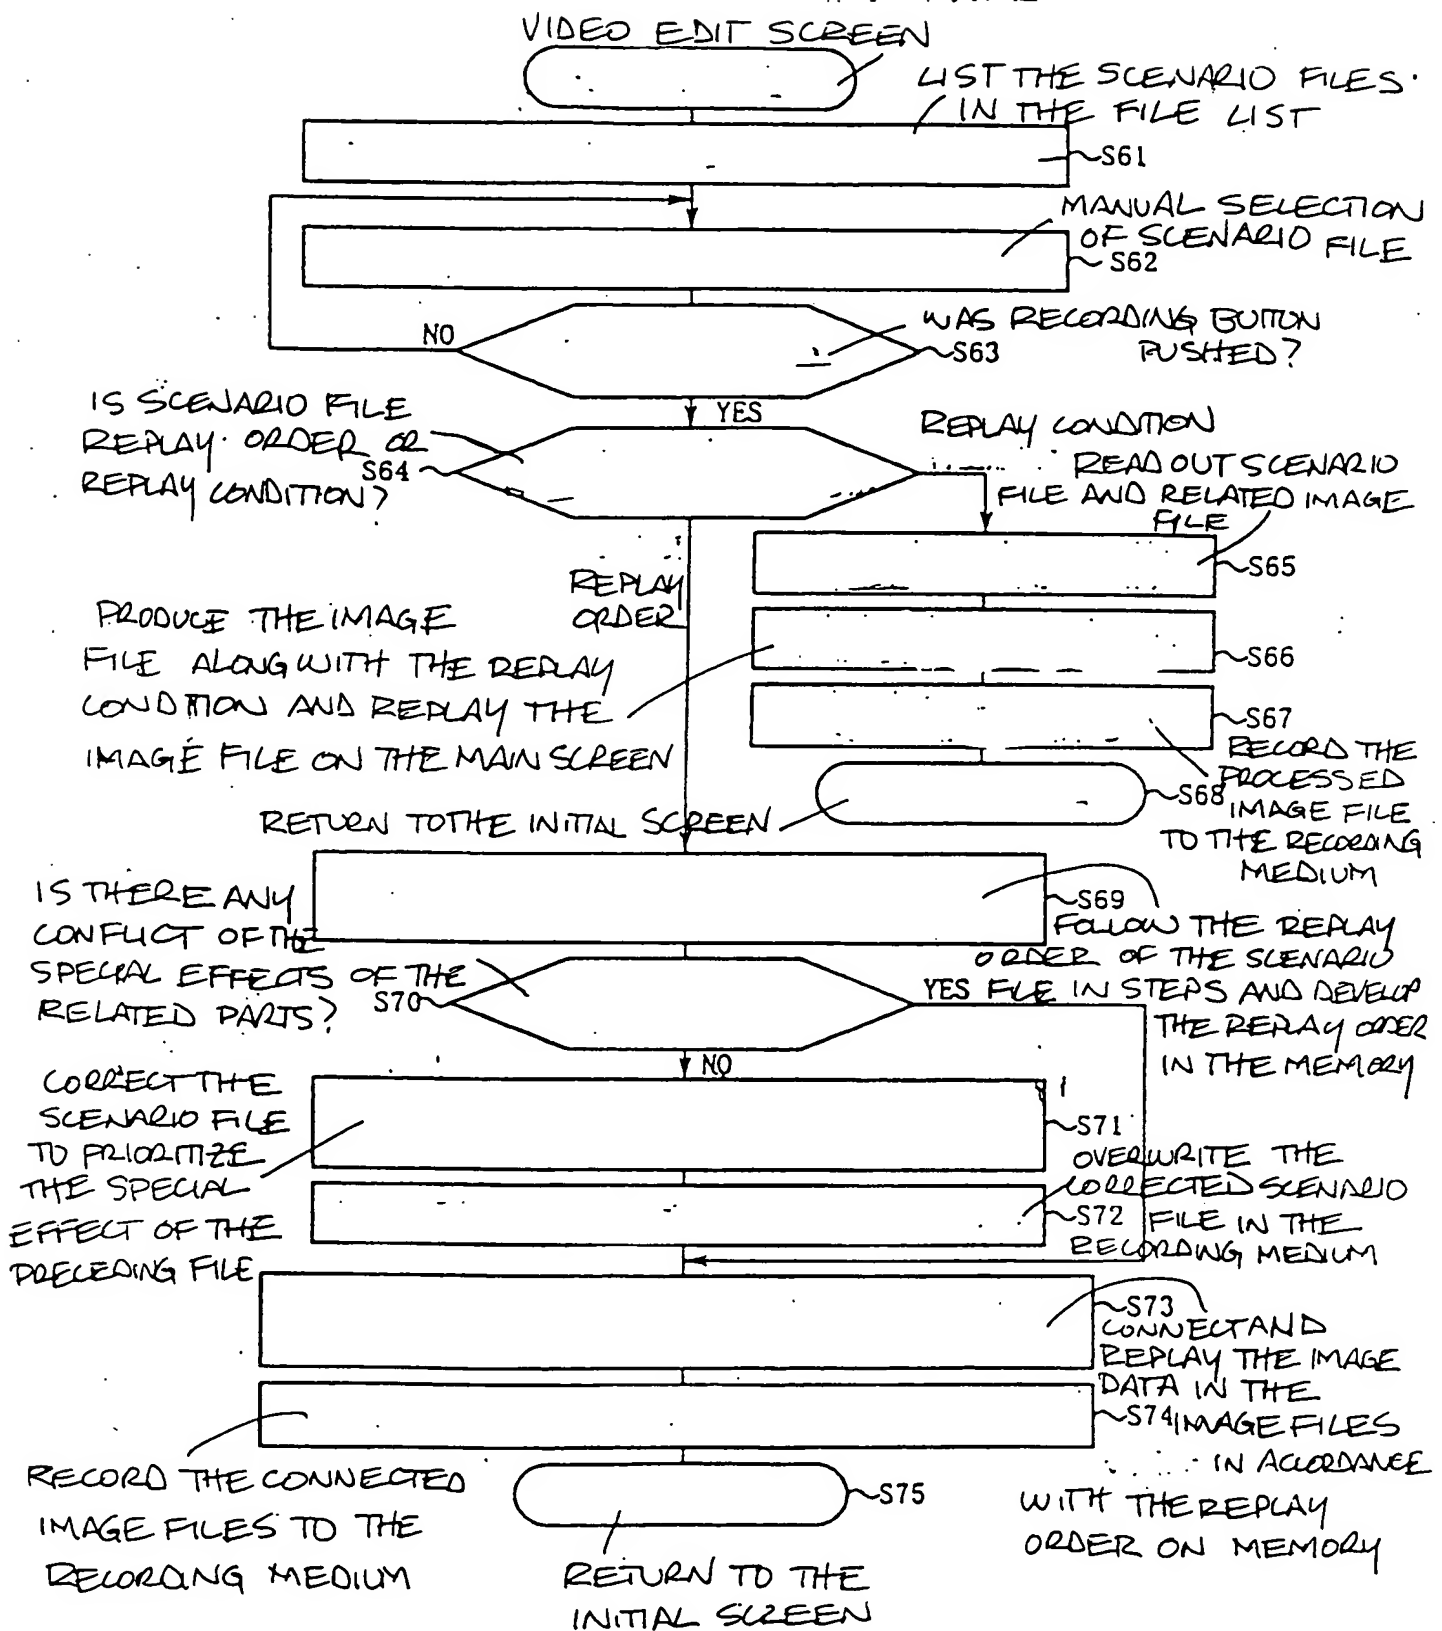 VIDEO EDIT SCREEN
LIST THE SCENARIO FILES
IN THE FILE LIST
S61
MANUAL SELECTION
OF SCENARIO FILE
S62
NO
WAS RECORDING BUTTON
PUSHED?
S63
YES
IS SCENARIO FILE
REPLAY ORDER OR
REPLAY CONDITION?
S64
REPLAY CONDITION
READ OUT SCENARIO
FILE AND RELATED IMAGE
FILE
S65
REPLAY
ORDER
PRODUCE THE IMAGE
FILE ALONG WITH THE REPLAY
CONDITION AND REPLAY THE
IMAGE FILE ON THE MAIN SCREEN
S66
S67
RECORD THE
PROCESSED
IMAGE FILE
TO THE RECORDING
MEDIUM
S68
RETURN TO THE INITIAL SCREEN
S69
FOLLOW THE REPLAY
ORDER OF THE SCENARIO
FILE IN STEPS AND DEVELOP
THE REPLAY ORDER
IN THE MEMORY
IS THERE ANY
CONFLICT OF THE
SPECIAL EFFECTS OF THE
RELATED PARTS?
S70
YES
NO
CORRECT THE
SCENARIO FILE
TO PRIORITIZE
THE SPECIAL
EFFECT OF THE
PRECEDING FILE
S71
OVERWRITE THE
CORRECTED SCENARIO
FILE IN THE
RECORDING MEDIUM
S72
S73
CONNECT AND
REPLAY THE IMAGE
DATA IN THE
IMAGE FILES
IN ACCORDANCE
WITH THE REPLAY
ORDER ON MEMORY
S74
RECORD THE CONNECTED
IMAGE FILES TO THE
RECORDING MEDIUM
S75
RETURN TO THE
INITIAL SCREEN